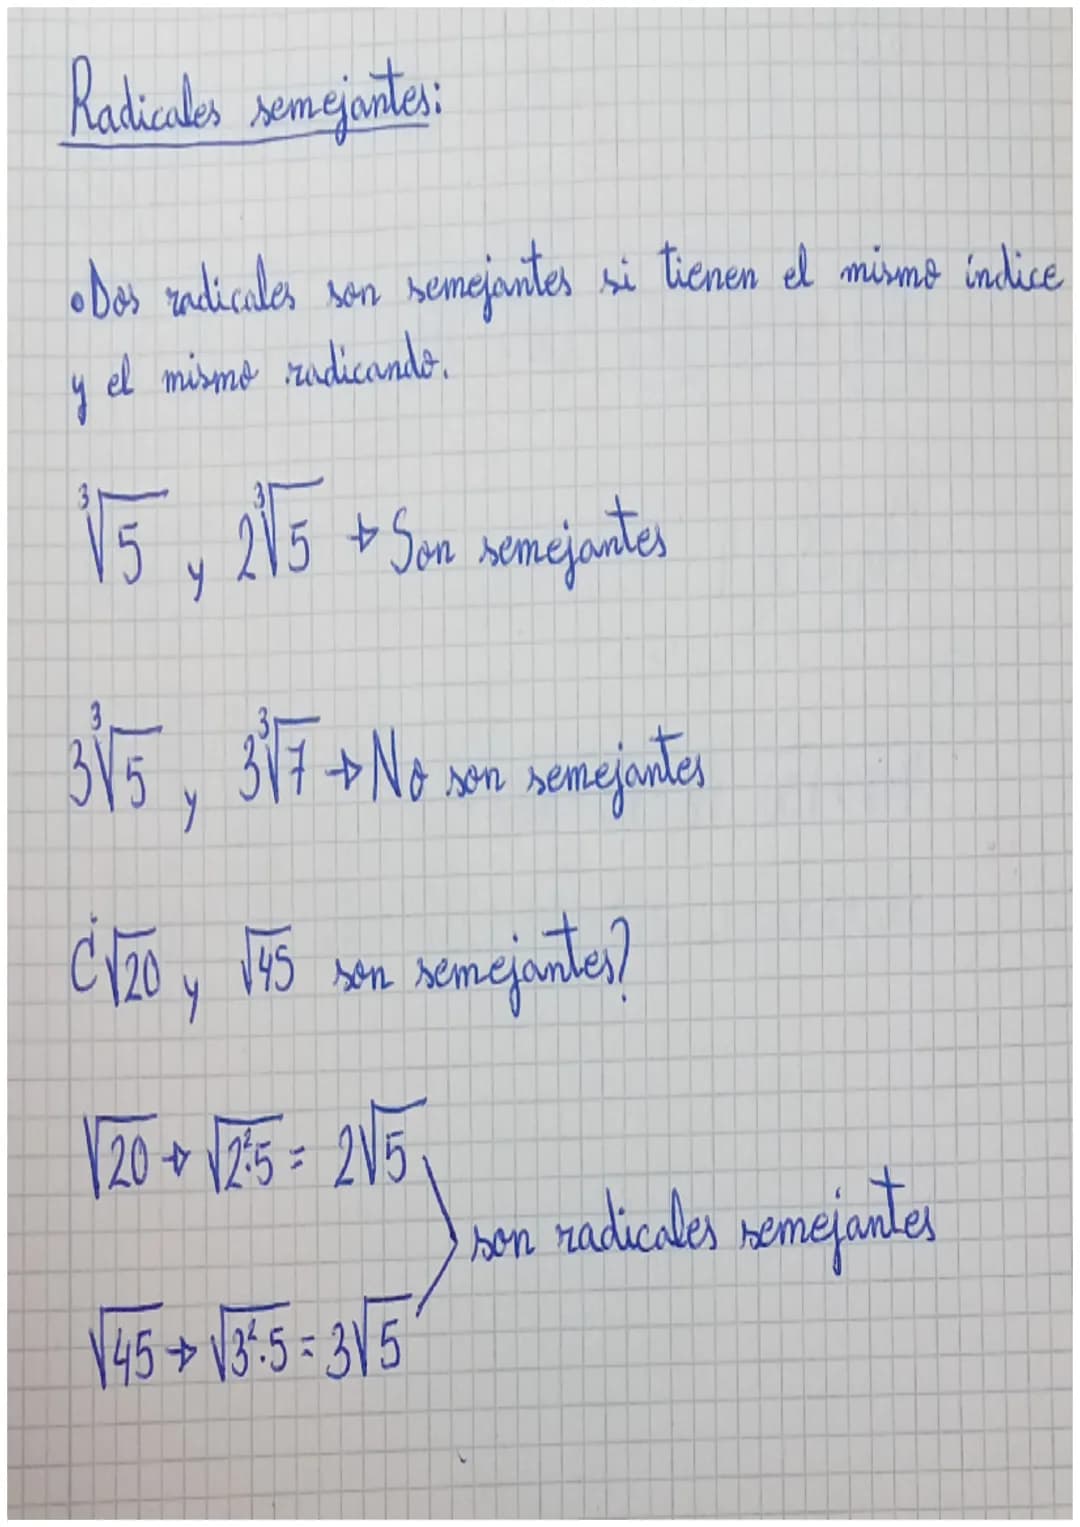 Radicales semejantes:
• Dos radicales son semejantes si tienen el mismo índice
y el mismo radicando.
∛5 y 2∛5 → Son semejantes
3∛5 y 3∛7 → No son semejantes
¿√20 y √45 son semejantes?
√20 → √2²·5 = 2√5
son radicales semejantes
√45 → √3²·5 = 3√5